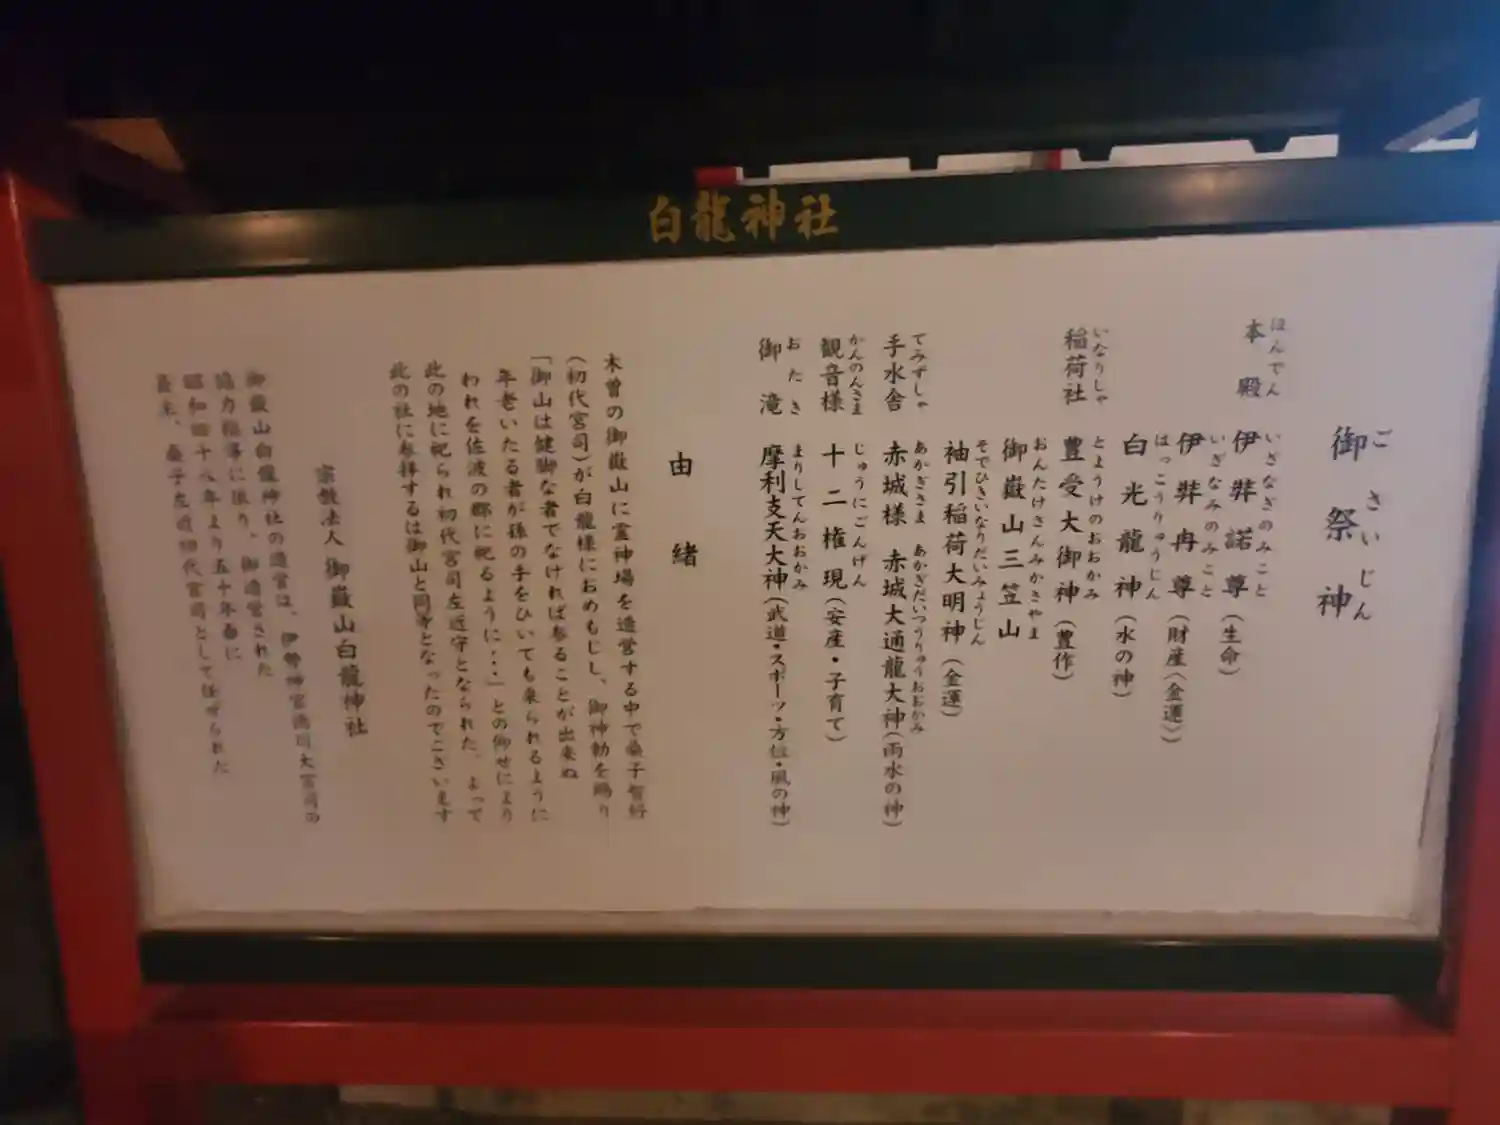 白龍神社
御祭神
ごさいじん
本殿
ほんでん
伊弉諾尊(生命)
いざなぎのみこと
伊弉冉尊(財産(金運))
いざなみのみこと
白光龍神(水の神)
はっこうりゅうじん
稲荷社
いなりしゃ
豊受大御神(豊作)
とようけのおおかみ
御嶽山三笠山
おんたけさんみかさやま
袖引稲荷大明神(金運)
そでひきいなりだいみょうじん
手水舎
てみずしゃ
赤城様 赤城大通龍大神(雨水の神)
あかぎさま あかぎだいつうりゅうおおかみ
観音様
かんのんさま
十二権現(安産・子育て)
じゅうにごんげん
御滝
おたき
摩利支天大神(武道・スポーツ・方位・風の神)
まりしてんおおかみ
由緒
木曽の御嶽山に霊神場を造営する中で桑子
(初代宮司)が白龍様におめもじし、御神勅を賜り
「御山は健脚な者でなければ参ることが出来ぬ
年老いたる者が孫の手をひいても来られるように
われを佐波の郡に祀るように・・・」との仰せにより
此の地に祀られ初代宮司左近守となられた。よって
此の社に参拝するは御山と同等となったのでございます
宗教法人 御嶽山白龍神社
御嶽山白龍神社の造営は、伊勢神宮徳川大宮司の
協力指導に依り、御造営された
昭和四十八年より五十年春に
桑子左近初代宮司として任ぜられた